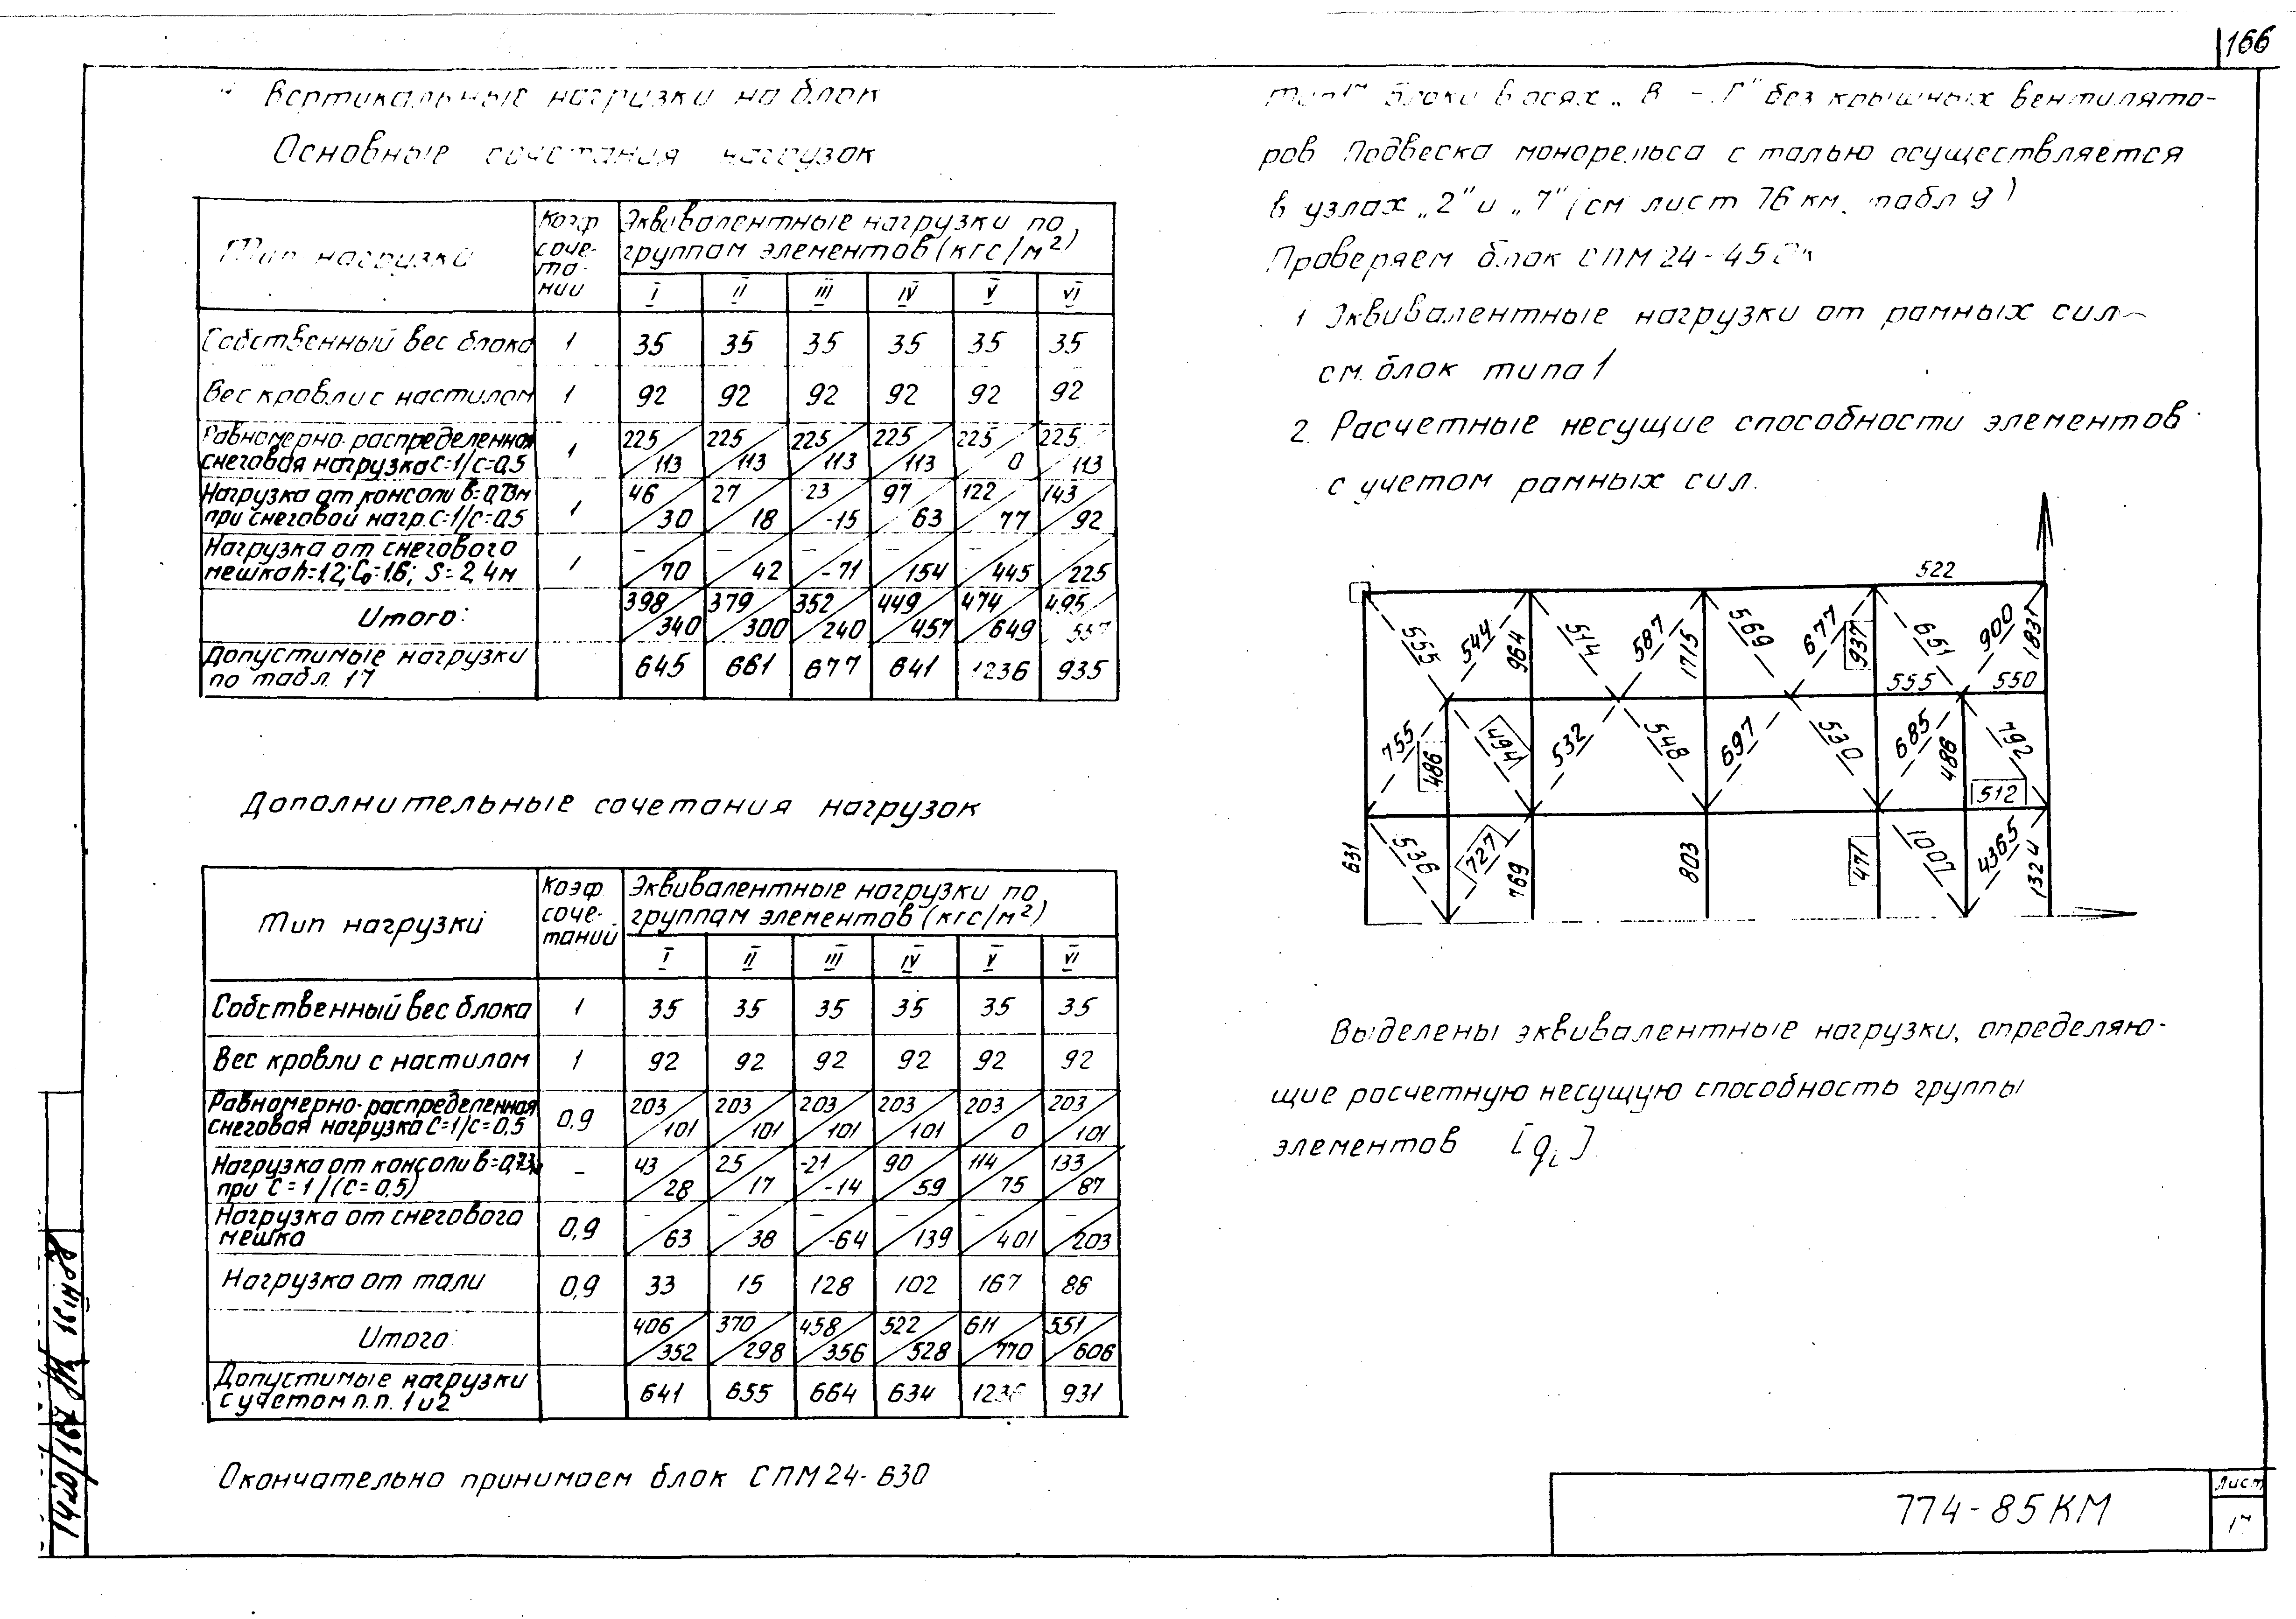 166
Вертикальные нагрузки на блок
Основные сочетания нагрузок
Тип нагрузки
Коэф
соче-
та-
нии
Эквивалентные нагрузки по
группам элементов (кгс/м²)
I II III IV V VI
Собственный вес блока 1 35 35 35 35 35 35
Вес кровли с настилом 1 92 92 92 92 92 92
Равномерно-распределенная
снеговая нагрузка С=1/С=0,5 1 225/113 225/113 225/113 225/113 225/0 225/113
Нагрузка от консоли в=0,73м
при снеговой нагр. С=1/С=0,5 1 46/30 27/18 -23/-15 97/63 122/77 143/92
Нагрузка от снегового
мешка h=1,2; С₀=1,6; S=2,4м 1 –/70 –/42 –/-71 –/154 –/445 –/225
Итого: 398/340 379/300 352/240 449/457 474/649 495/557
Допустимые нагрузки
по табл. 17 645 661 677 641 1236 935
Дополнительные сочетания нагрузок
Тип нагрузки
Коэф
соче-
таний
Эквивалентные нагрузки по
группам элементов (кгс/м²)
I II III IV V VI
Собственный вес блока 1 35 35 35 35 35 35
Вес кровли с настилом 1 92 92 92 92 92 92
Равномерно-распределенная
снеговая нагрузка С=1/С=0,5 0,9 203/101 203/101 203/101 203/101 203/0 203/101
Нагрузка от консоли в=0,73м
при С=1/(С=0,5) – 43/28 25/17 -21/-14 90/59 114/75 133/87
Нагрузка от снегового
мешка 0,9 –/63 –/38 –/-64 –/139 –/401 –/203
Нагрузка от тали 0,9 33 15 128 102 167 86
Итого: 406/352 370/298 458/356 522/528 611/770 551/606
Допустимые нагрузки
с учетом п.п. 1 и 2 641 655 664 634 1236 931
Окончательно принимаем блок СПМ24-630
блоки в осях „В - Г" без крышных вентилято-
ров Подвеска монорельса с талью осуществляется
в узлах „2" и „7" (см лист 76 км, табл 9)
Проверяем блок СПМ24-450
1 Эквивалентные нагрузки от рамных сил –
см. блок типа 1
2. Расчетные несущие способности элементов
с учетом рамных сил.
522
555 544 964 514 587 1715 569 677 937 651 900 1831
555 550
755 486 494 532 548 697 530 685 486 792
512
631 536 727 769 803 471 1007 4365 1324
Выделены эквивалентные нагрузки, определяю-
щие расчетную несущую способность группы
элементов [qᵢ].
774-85КМ
Лист
17